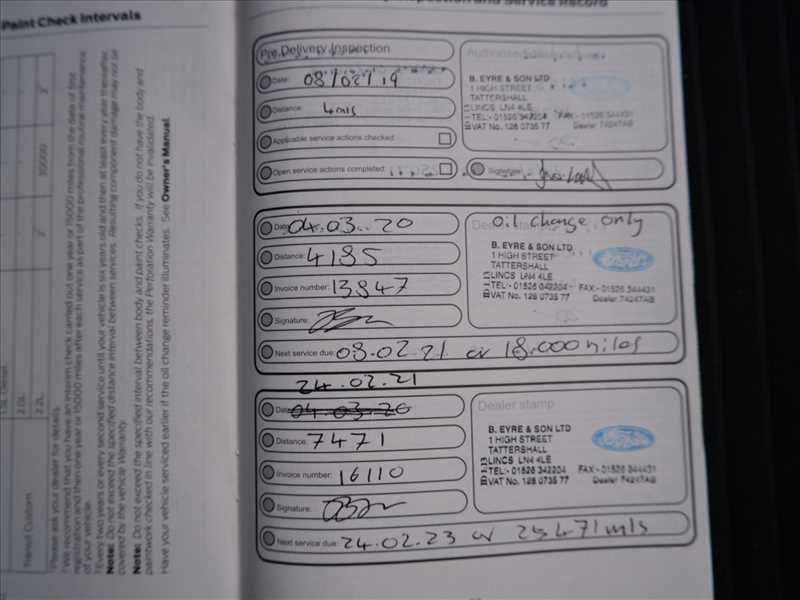 Paint Check Intervals
Transit Custom
2.0L
2.2L
30000
Please ask your dealer for details.
We recommend that you have an interim check carried out one year or 15000 miles from the date of first
registration and then one year or 15000 miles after each service as part of the professional routine maintenance
of your vehicle.
Every two years or every second service until your vehicle is six years old and then at least every year thereafter.
Note: Do not exceed the specified distance interval between services. Resulting component damage may not be
covered by the vehicle Warranty.
Note: Do not exceed the specified interval between body and paint checks. If you do not have the body and
paintwork checked in line with our recommendations, the Perforation Warranty will be invalidated.
Have your vehicle serviced earlier if the oil change reminder illuminates. See Owner's Manual.
and Service Record
Pre Delivery Inspection
Date: 08/02/19
Distance: 4mls
Applicable service actions checked:
Open service actions completed:
B. EYRE & SON LTD
1 HIGH STREET
TATTERSHALL
LINCS LN4 4LE
TEL:- 01526 342204 FAX:- 01526 344431
VAT No. 128 0735 77 Dealer 74247AB
Signature:
Date: 04.03.20
Distance: 4185
Invoice number: 13847
Signature:
Next service due: 03.02.21 or 18,000 miles
Oil change only
Dealer stamp
B. EYRE & SON LTD
1 HIGH STREET
TATTERSHALL
LINCS LN4 4LE
TEL:- 01526 342204 FAX:- 01526 344431
VAT No. 128 0735 77 Dealer 74247AB
24.02.21
Date: 04.03.20
Distance: 7471
Invoice number: 16110
Signature:
Next service due: 24.02.23 or 25471mls
Dealer stamp
B. EYRE & SON LTD
1 HIGH STREET
TATTERSHALL
LINCS LN4 4LE
TEL:- 01526 342204 FAX:- 01526 344431
VAT No. 128 0735 77 Dealer 74247AB